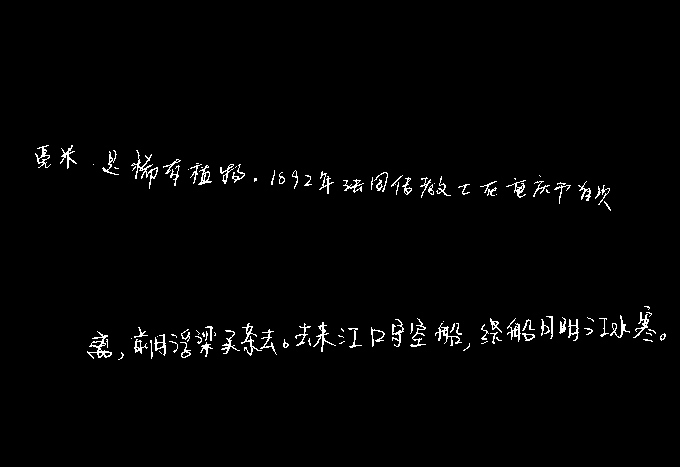 毫米.是稀有植物.1892年法国传教士在重庆市首次
离,前月浮梁买茶去。去来江口守空船,绕船月明江水寒。